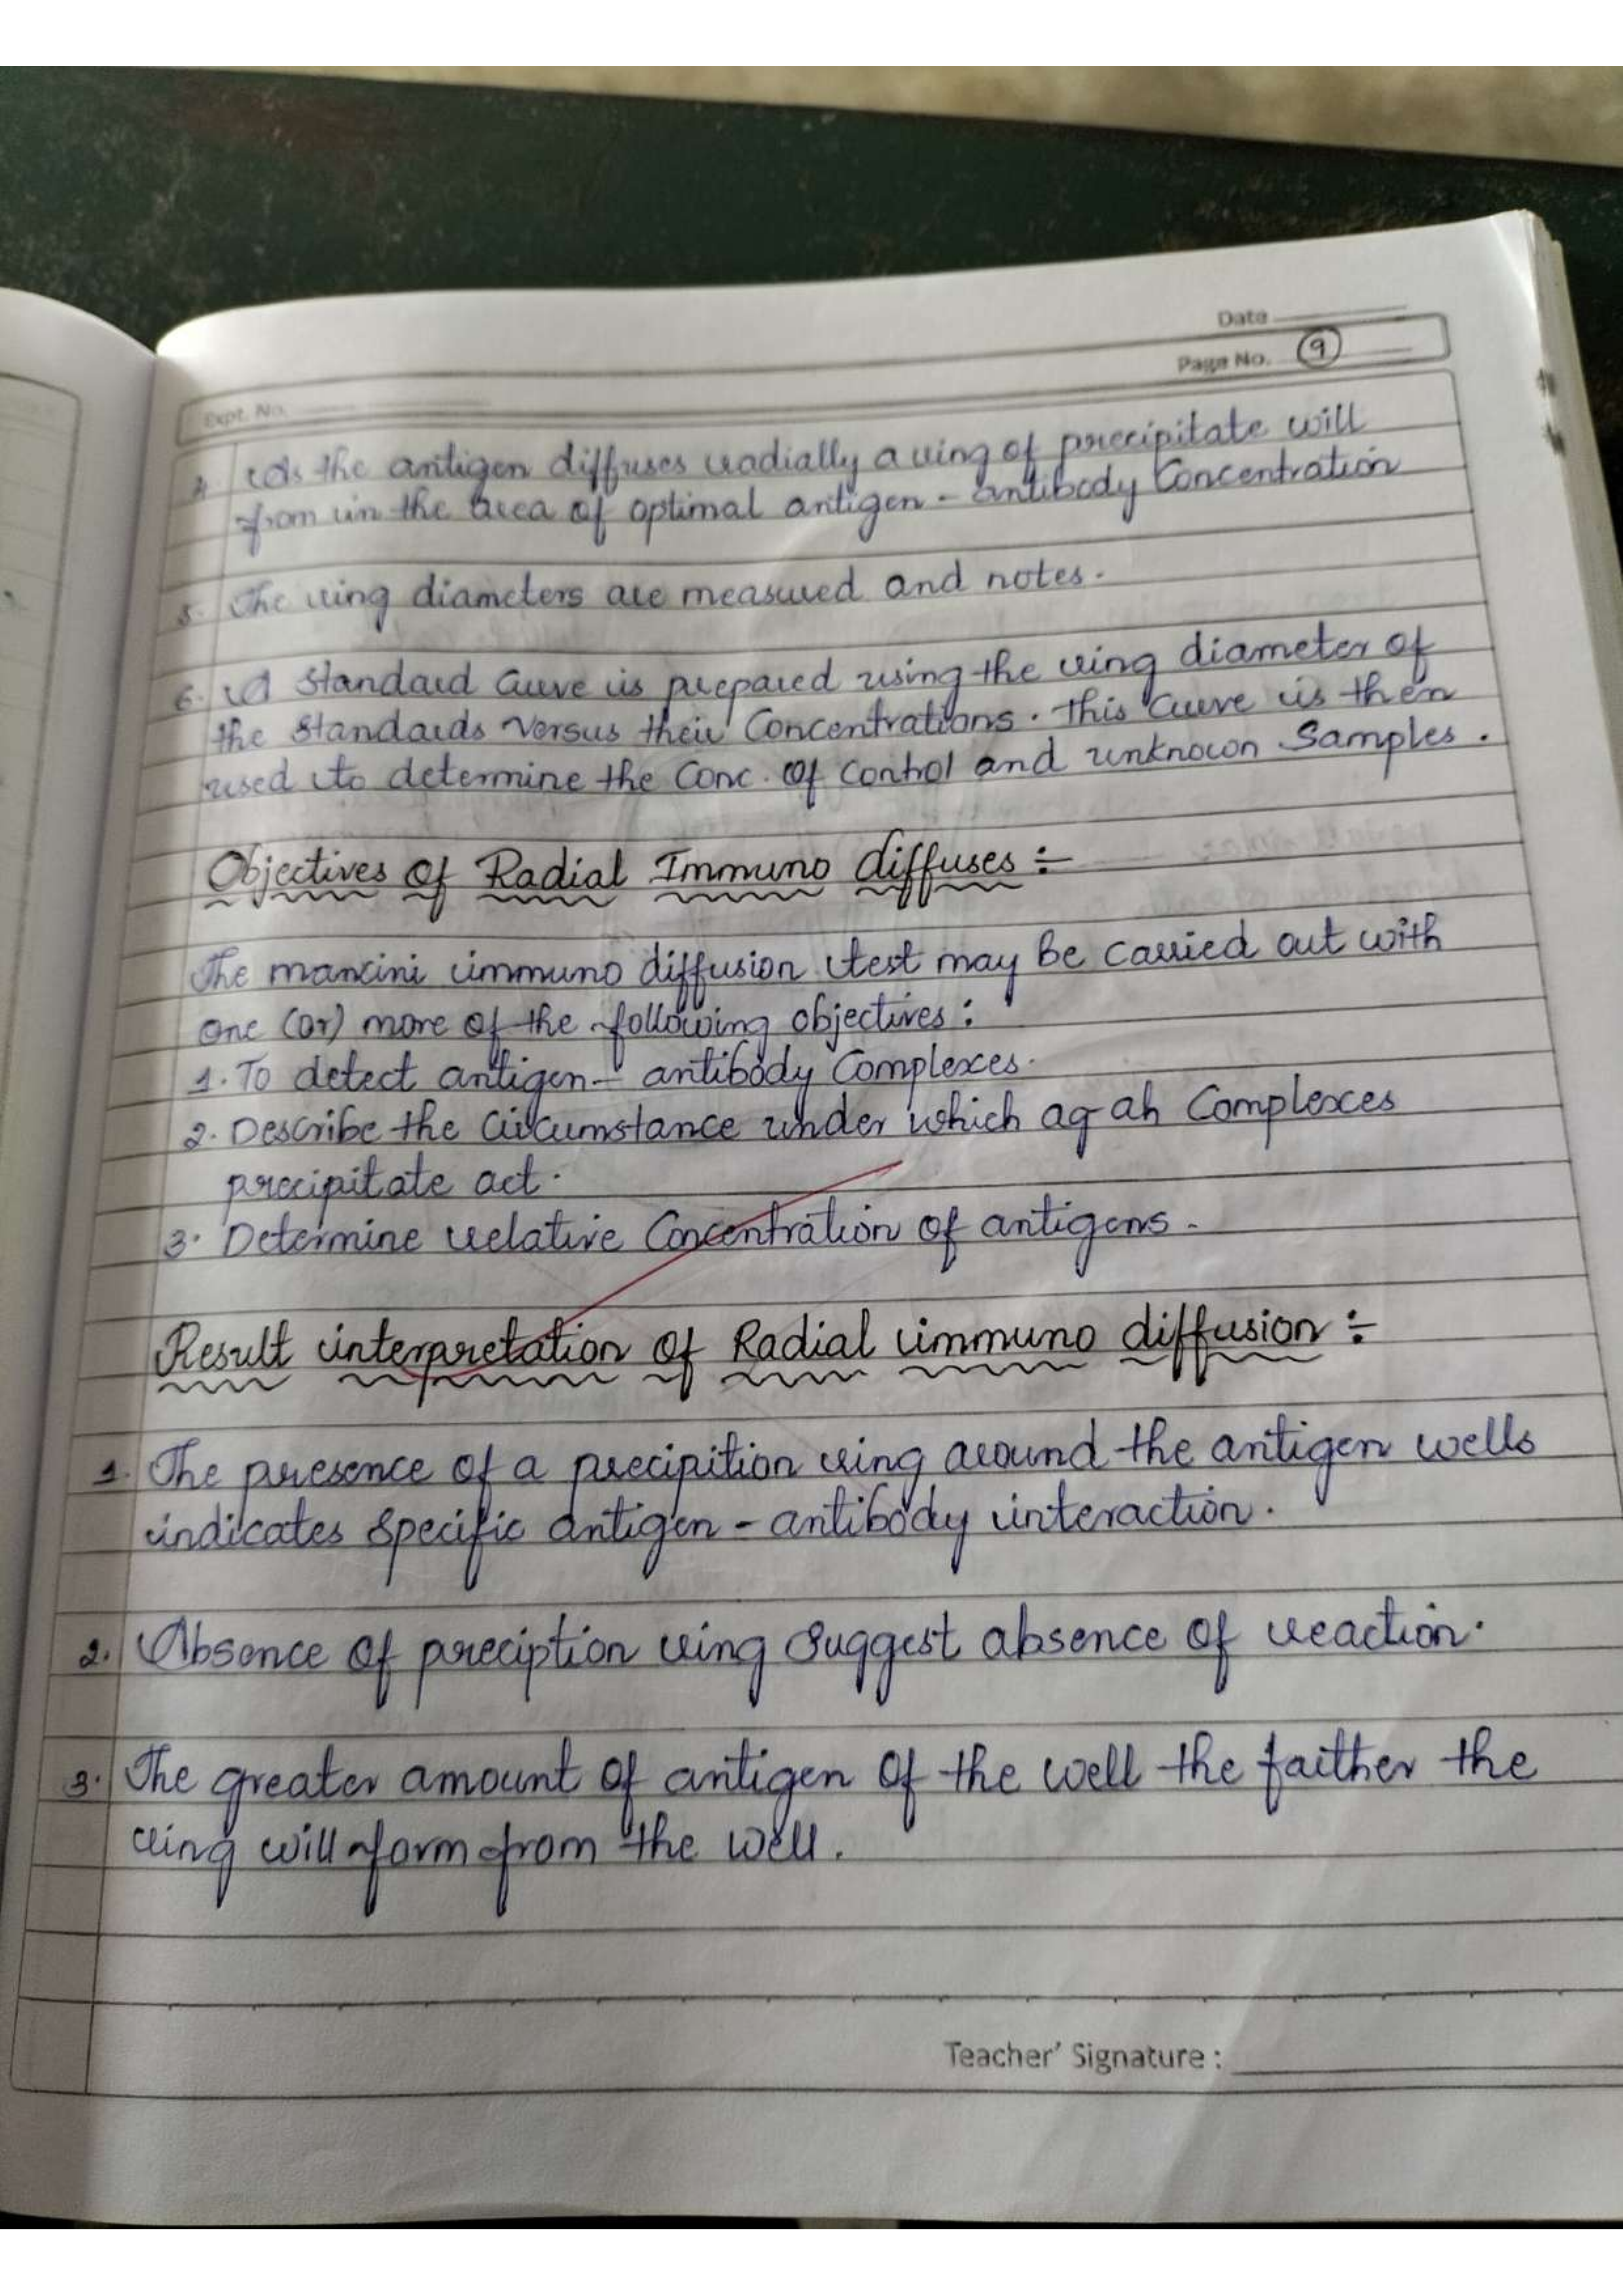 Date
Page No. 9
Expt. No.
4. As the antigen diffuses radially a ring of precipitate will
from in the area of optimal antigen - antibody Concentration
5. The ring diameters are measured and notes.
6. A Standard Curve is prepared using the ring diameter of
the Standards Versus their Concentrations. This Curve is then
used to determine the Conc. Of Control and unknown Samples.
Objectives Of Radial Immuno diffuses :-
The mancini immuno diffusion test may be carried out with
one (or) more of the following objectives :
1. To detect antigen - antibody Complexes.
2. Describe the Circumstance under which ag-ah Complexes
precipitate act.
3. Determine relative Concentration of antigens -
Result interpretation Of Radial immuno diffusion :-
1. The presence of a precipition ring around the antigen wells
indicates specific antigen - antibody interaction.
2. Absence Of preciption ring Suggest absence of reaction.
3. The greater amount of antigen Of the well the faither the
ring will form from the well.
Teacher' Signature :